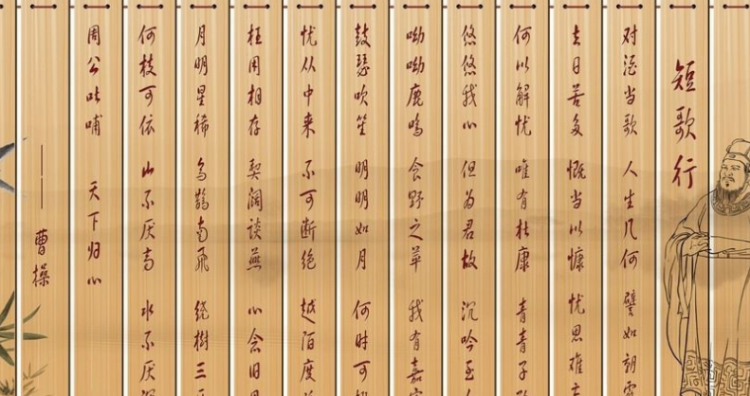 短歌行
对酒当歌 人生几何 譬如朝
去日苦多 慨当以慷 忧思难
何以解忧 唯有杜康 青青子
悠悠我心 但为君故 沉吟至
呦呦鹿鸣 食野之苹 我有嘉
鼓瑟吹笙 明明如月 何时可
忧从中来 不可断绝 越陌度
枉用相存 契阔谈燕 心念旧
月明星稀 乌鹊南飞 绕樹三
何枝可依 山不厌高 水不厌
周公吐哺 天下归心
——曹操